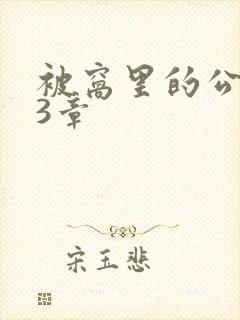 被窝里的公
3章
宋玉悲